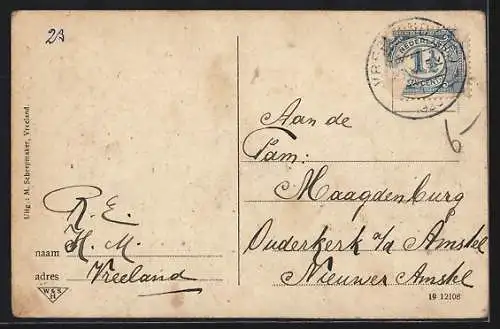 23
NEDERLAND
1½
CENT
VR
Uitg.: M. Scheepmaker, Vreeland.
Aan de
Fam:
Maagdenburg
Ouderkerk a/a Amstel
Nieuwer Amstel
R. E.
H. M.
naam
adres Vreeland
W&S
H
19 12108